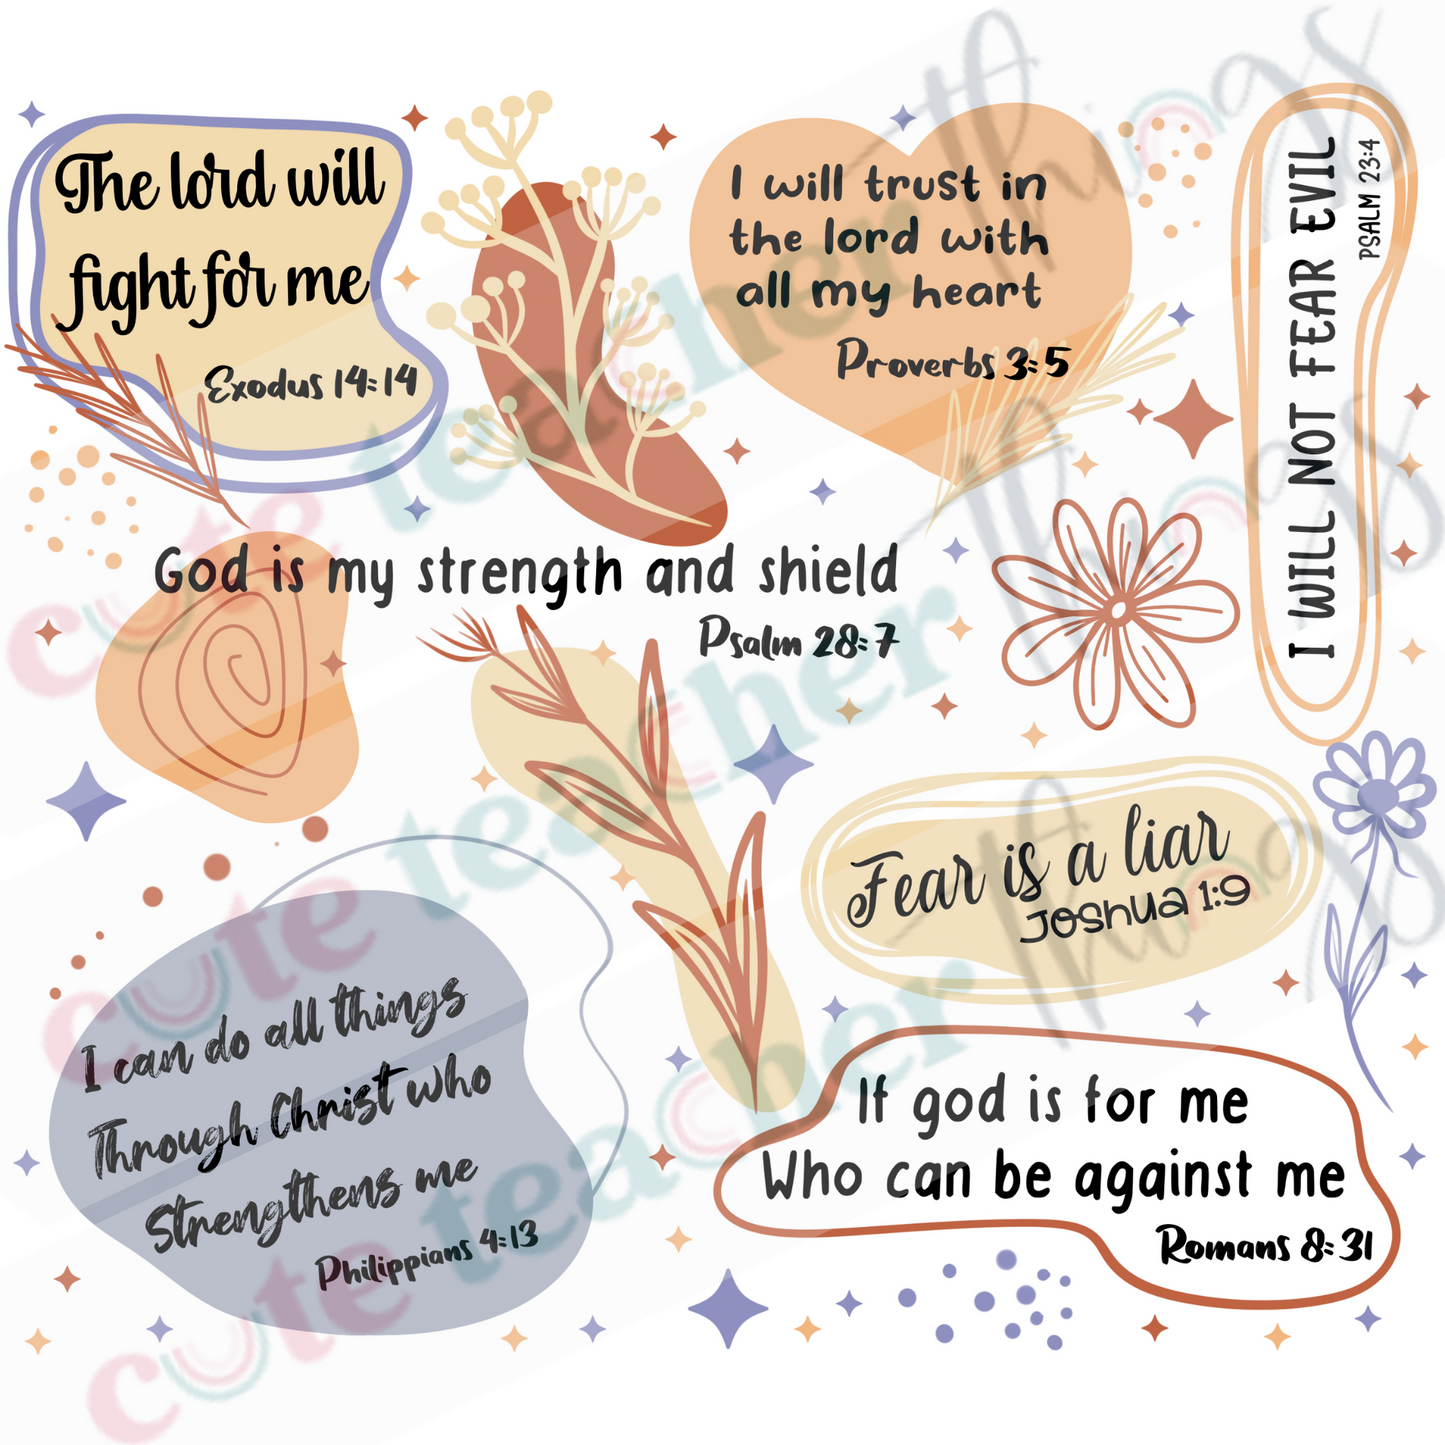 The lord will
fight for me
Exodus 14:14
I will trust in
the lord with
all my heart
Proverbs 3:5
I WILL NOT FEAR EVIL
PSALM 23:4
God is my strength and shield
Psalm 28:7
Fear is a liar
Joshua 1:9
I can do all things
Through Christ who
Strengthens me
Philippians 4:13
If god is for me
Who can be against me
Romans 8:31
cute teacher things
cute teacher things
cute teacher things